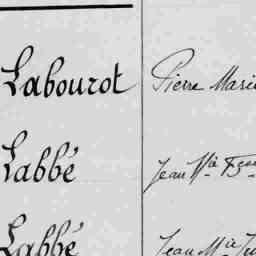 Labourot Pierre Marie
Labbé Jean Mie Fçois
Labbé Jean Mie